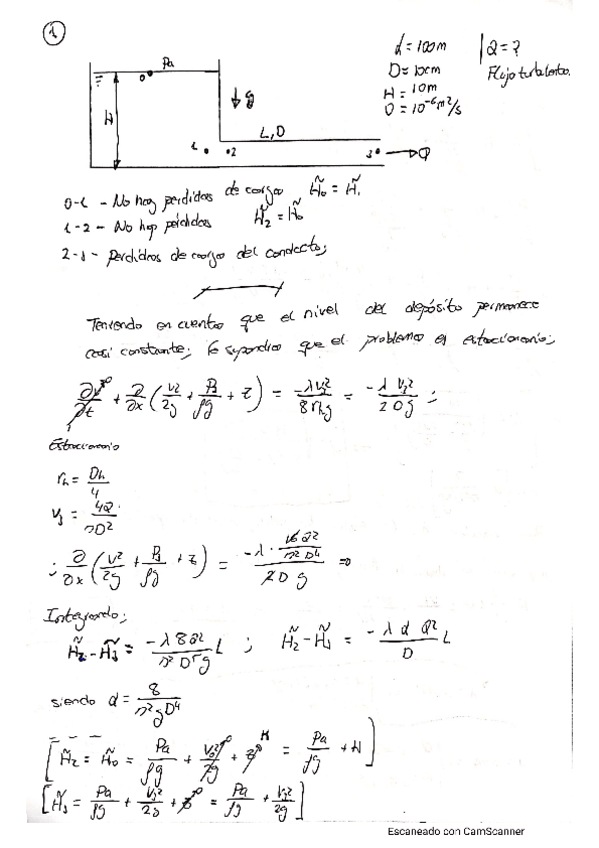 1
Pa
0
H
g
L, D
1
2
3
Q
d = 100m
D = 10cm
H = 10m
υ = 10⁻⁶ m²/s
Q = ?
Flujo turbulento.
0-1 - No hay perdidas de carga H̃₀ = H̃₁
1-2 - No hay pérdidas H̃₂ = H̃₀
2-3 - Perdidas de carga del conducto;
Teniendo en cuenta que el nivel del depósito permanece
casi constante; Se supondrá que el problema es estacionario;
∂v/∂t⁰ + ∂/∂x (v²/2g + P₃/ρg + z) = -λv₃²/8rₕg = -λ v₃²/2Dg ;
Estacionario
rₕ = Dₕ/4
v₃ = 4Q/πD²
; ∂/∂x (v²/2g + P₃/ρg + z) = -λ · 16Q²/π²D⁴ / 2Dg ⇒
Integrando;
H̃₂ - H̃₃ = -λ8Q²/π²D⁵g L ; H̃₂ - H̃₃ = -λ α Q²/D L
siendo α = 8/π²gD⁴
[H̃₂ = H̃₀ = Pa/ρg + v₀²/2g⁰ + z₀ᴴ = Pa/ρg + H]
[H̃₃ = Pa/ρg + v₃²/2g + z⁰ = Pa/ρg + v₃²/2g]
Escaneado con CamScanner